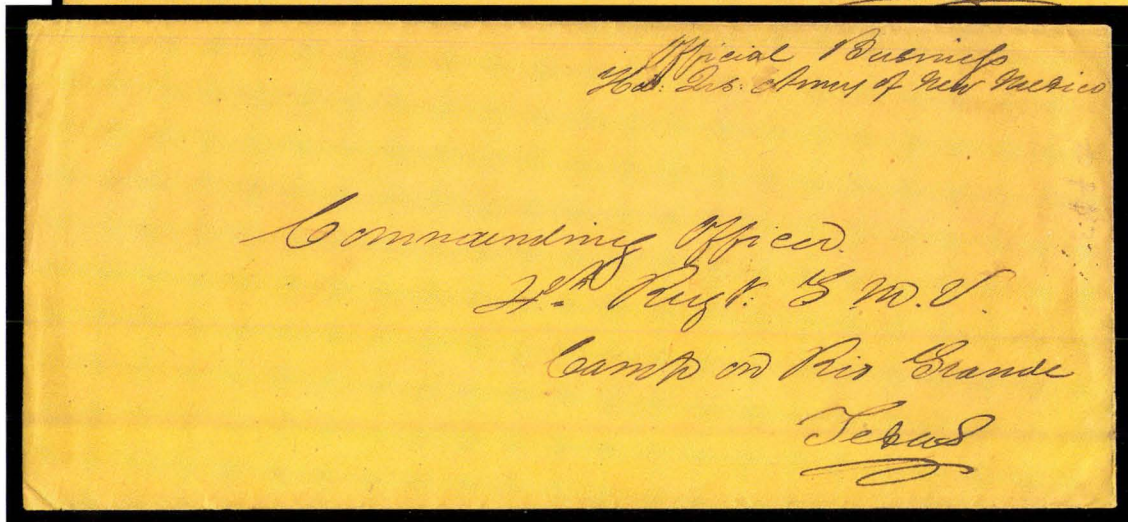 Official Business
Hd. Qrs. Army of New Mexico
Commanding Officer.
4th Regt. S M. V.
Camp on Rio Grande
Texas